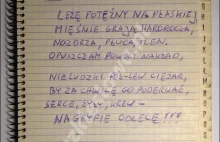 LEŻĘ POTĘŻNY NA PŁASKIEJ
MIĘŚNIE GRAJĄ HARDROCKA,
NOZDRZA, PŁUCA, TLEN.
OPUSZCZAM POWOLI NAKŁAD,
NIELUDZKI POZIEW CIĘŻAR,
BY ZA CHWILĘ GO PODERWAĆ,
SERCE, ŻYŁY, KREW –
NA GRYFIE ODLECĘ !!!